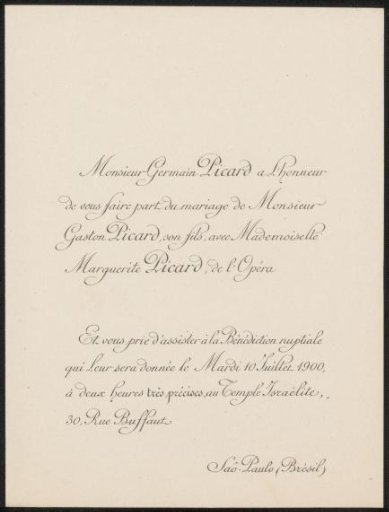 Monsieur Germain Picard a l'honneur
de vous faire part du mariage de Monsieur
Gaston Picard, son fils, avec Mademoiselle
Marguerite Picard, de l'Opéra
Et vous prie d'assister à la Bénédiction nuptiale
qui leur sera donnée le Mardi 10 Juillet 1900,
à deux heures très précises, au Temple Israélite,
30, Rue Buffaut
Saô-Paulo (Brésil)